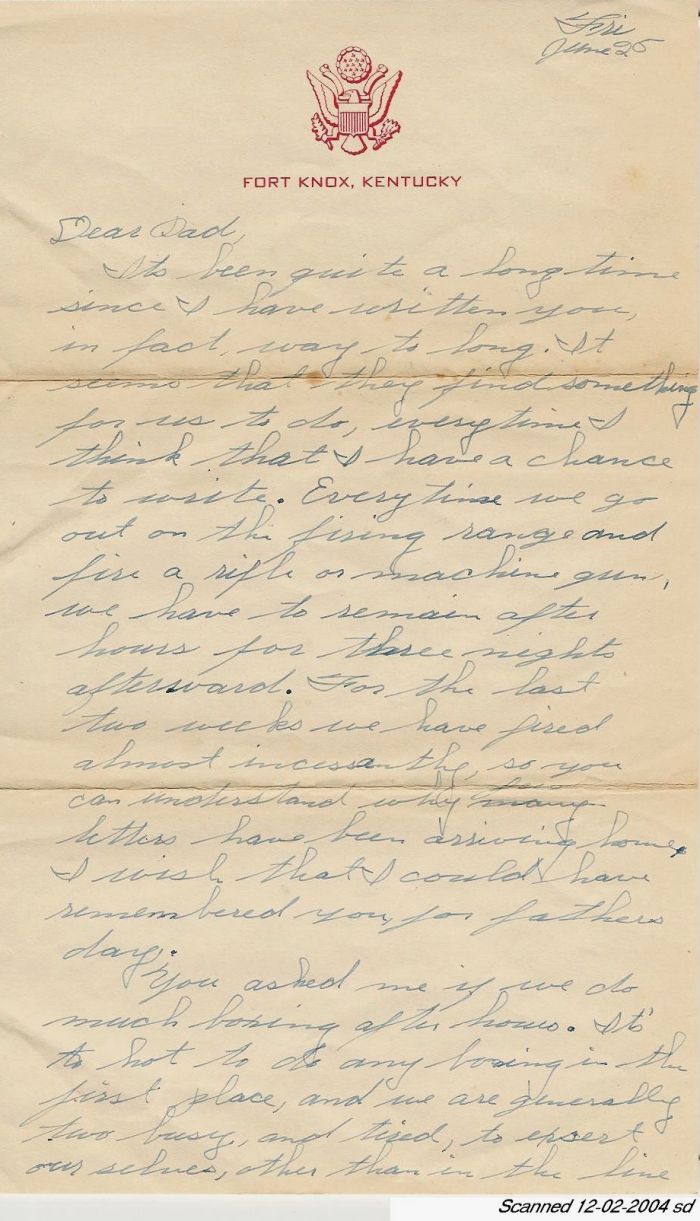 Fri
June 25
FORT KNOX, KENTUCKY
Dear Dad,
Its been quite a long time
since I have written you,
in fact, way to long. It
seems that they find something
for us to do, everytime I
think that I have a chance
to write. Everytime we go
out on the firing range and
fire a rifle or machine gun,
we have to remain after
hours for three nights
afterward. For the last
two weeks we have fired
almost incessantly, so you
can understand why few many
letters have been arriving home.
I wish that I could have
remembered you, for fathers
day.
You asked me if we do
much boxing after hours. It's
to hot to do any boxing in the
first place, and we are generally
two busy, and tired, to exsert
our selves, other than in the line
Scanned 12-02-2004 sd